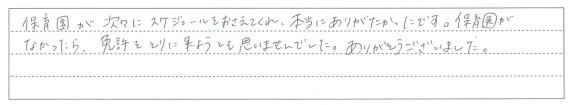 保育園が次々にスケジュールをおさえてくれ、本当にありがたかったです。保育園が
なかったら、免許をとりに来ようとも思いませんでした。ありがとうございました。